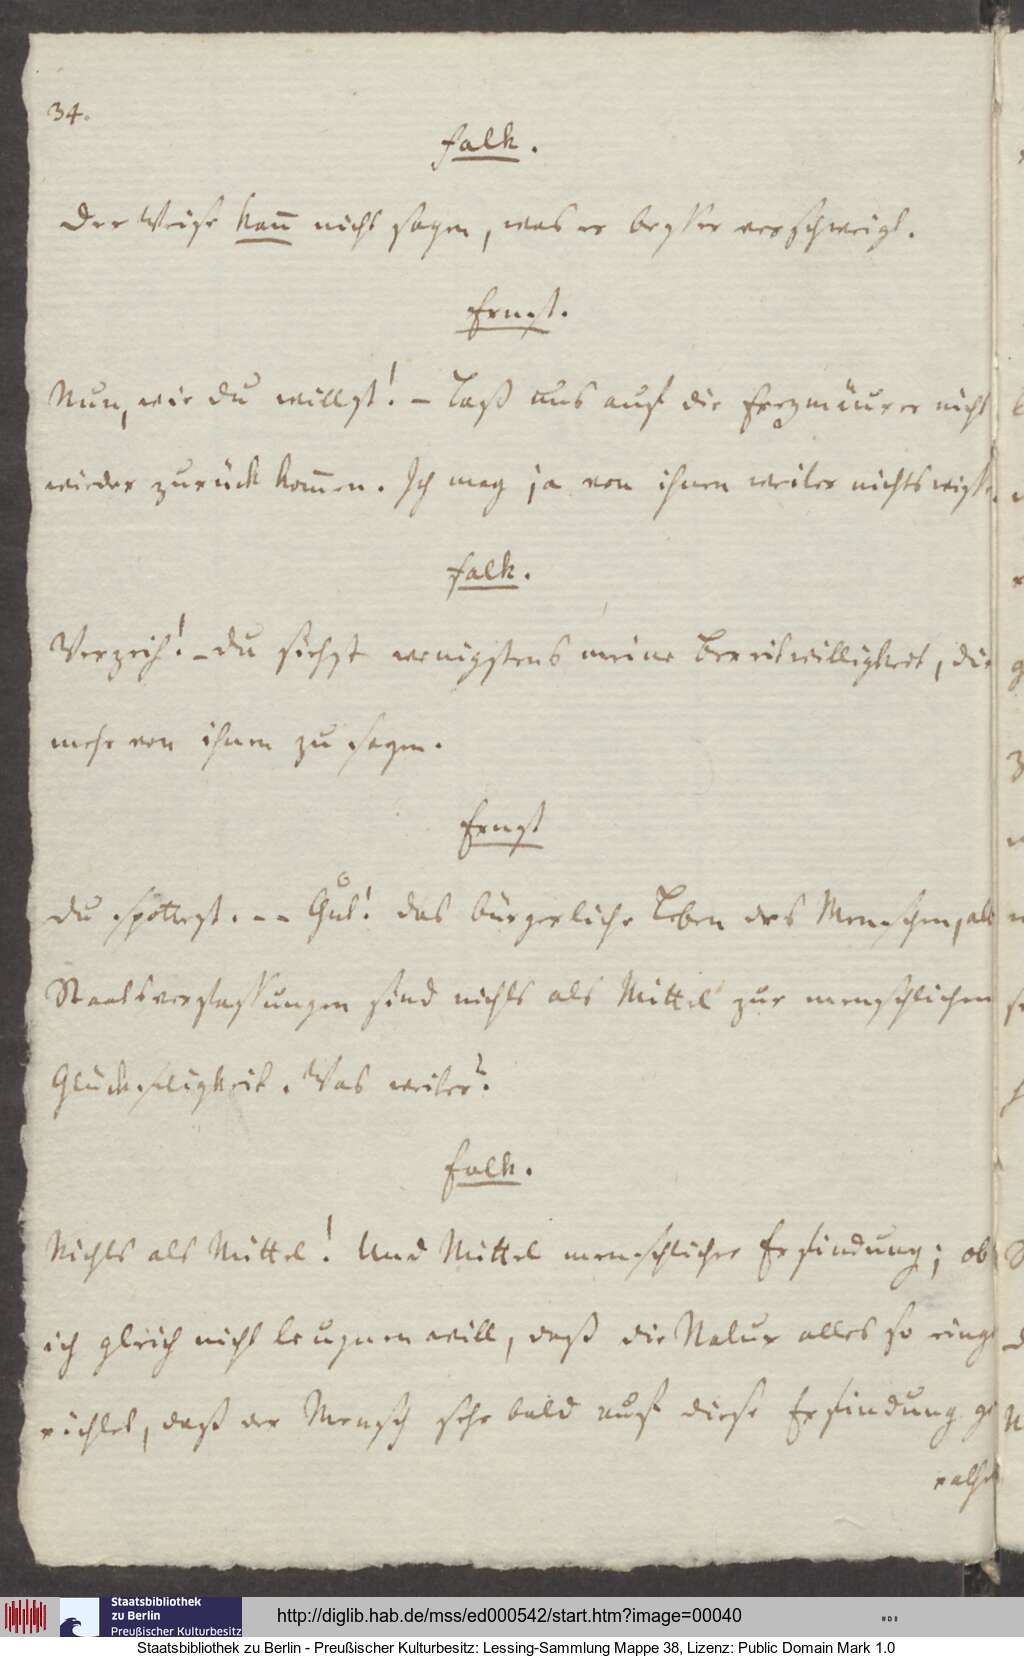 34.
Falk.
Der Weise kan̅ nicht sagen, was er besser verschweigt.
Ernst.
Nun, wie du willst! – Laß uns auf die Freymäurer nicht
wieder zurück kom̅en. Ich mag ja von ihnen weiter nichts wissen.
Falk.
Verzeih! – Du siehst wenigstens meine Bereitwilligkeit, dir
mehr von ihnen zu sagen.
Ernst
Du spottest. – – Gut! das bürgerliche Leben des Menschen, alle
Staatsverfassungen sind nichts als Mittel zur menschlichen
Glückseligkeit. Was weiter?
Falk.
Nichts als Mittel! Und Mittel menschlicher Erfindung; ob
ich gleich nicht leugnen will, daß die Natur alles so einge
richtet, daß der Mensch sehr bald auf diese Erfindung ge
rathen
Staatsbibliothek
zu Berlin
Preußischer Kulturbesitz
http://diglib.hab.de/mss/ed000542/start.htm?image=00040
Staatsbibliothek zu Berlin - Preußischer Kulturbesitz: Lessing-Sammlung Mappe 38, Lizenz: Public Domain Mark 1.0